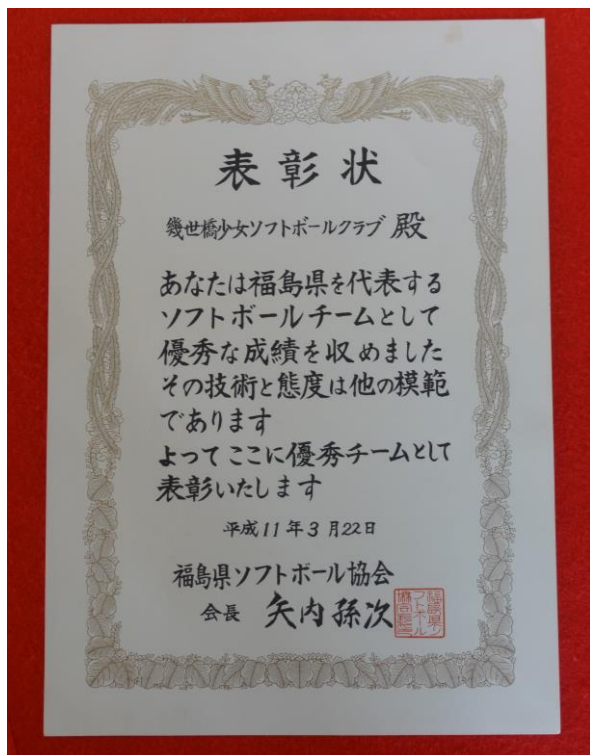 表彰状
幾世橋少女ソフトボールクラブ 殿
あなたは福島県を代表する
ソフトボールチームとして
優秀な成績を収めました
その技術と態度は他の模範
であります
よってここに優秀チームとして
表彰いたします
平成11年3月22日
福島県ソフトボール協会
会長 矢内孫次